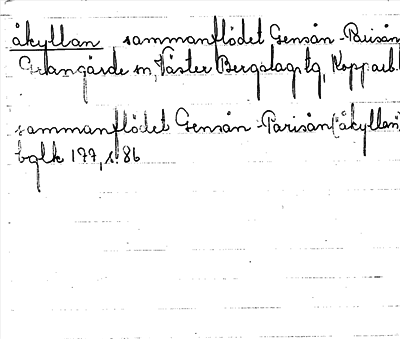 åkyllan sammanflödet Gensån-Parisån
Grangärde sn, Väster Bergslags tg, Kopparb.
sammanflödet Gensån-Parisån (åkyllan)
bglk 177, s 86